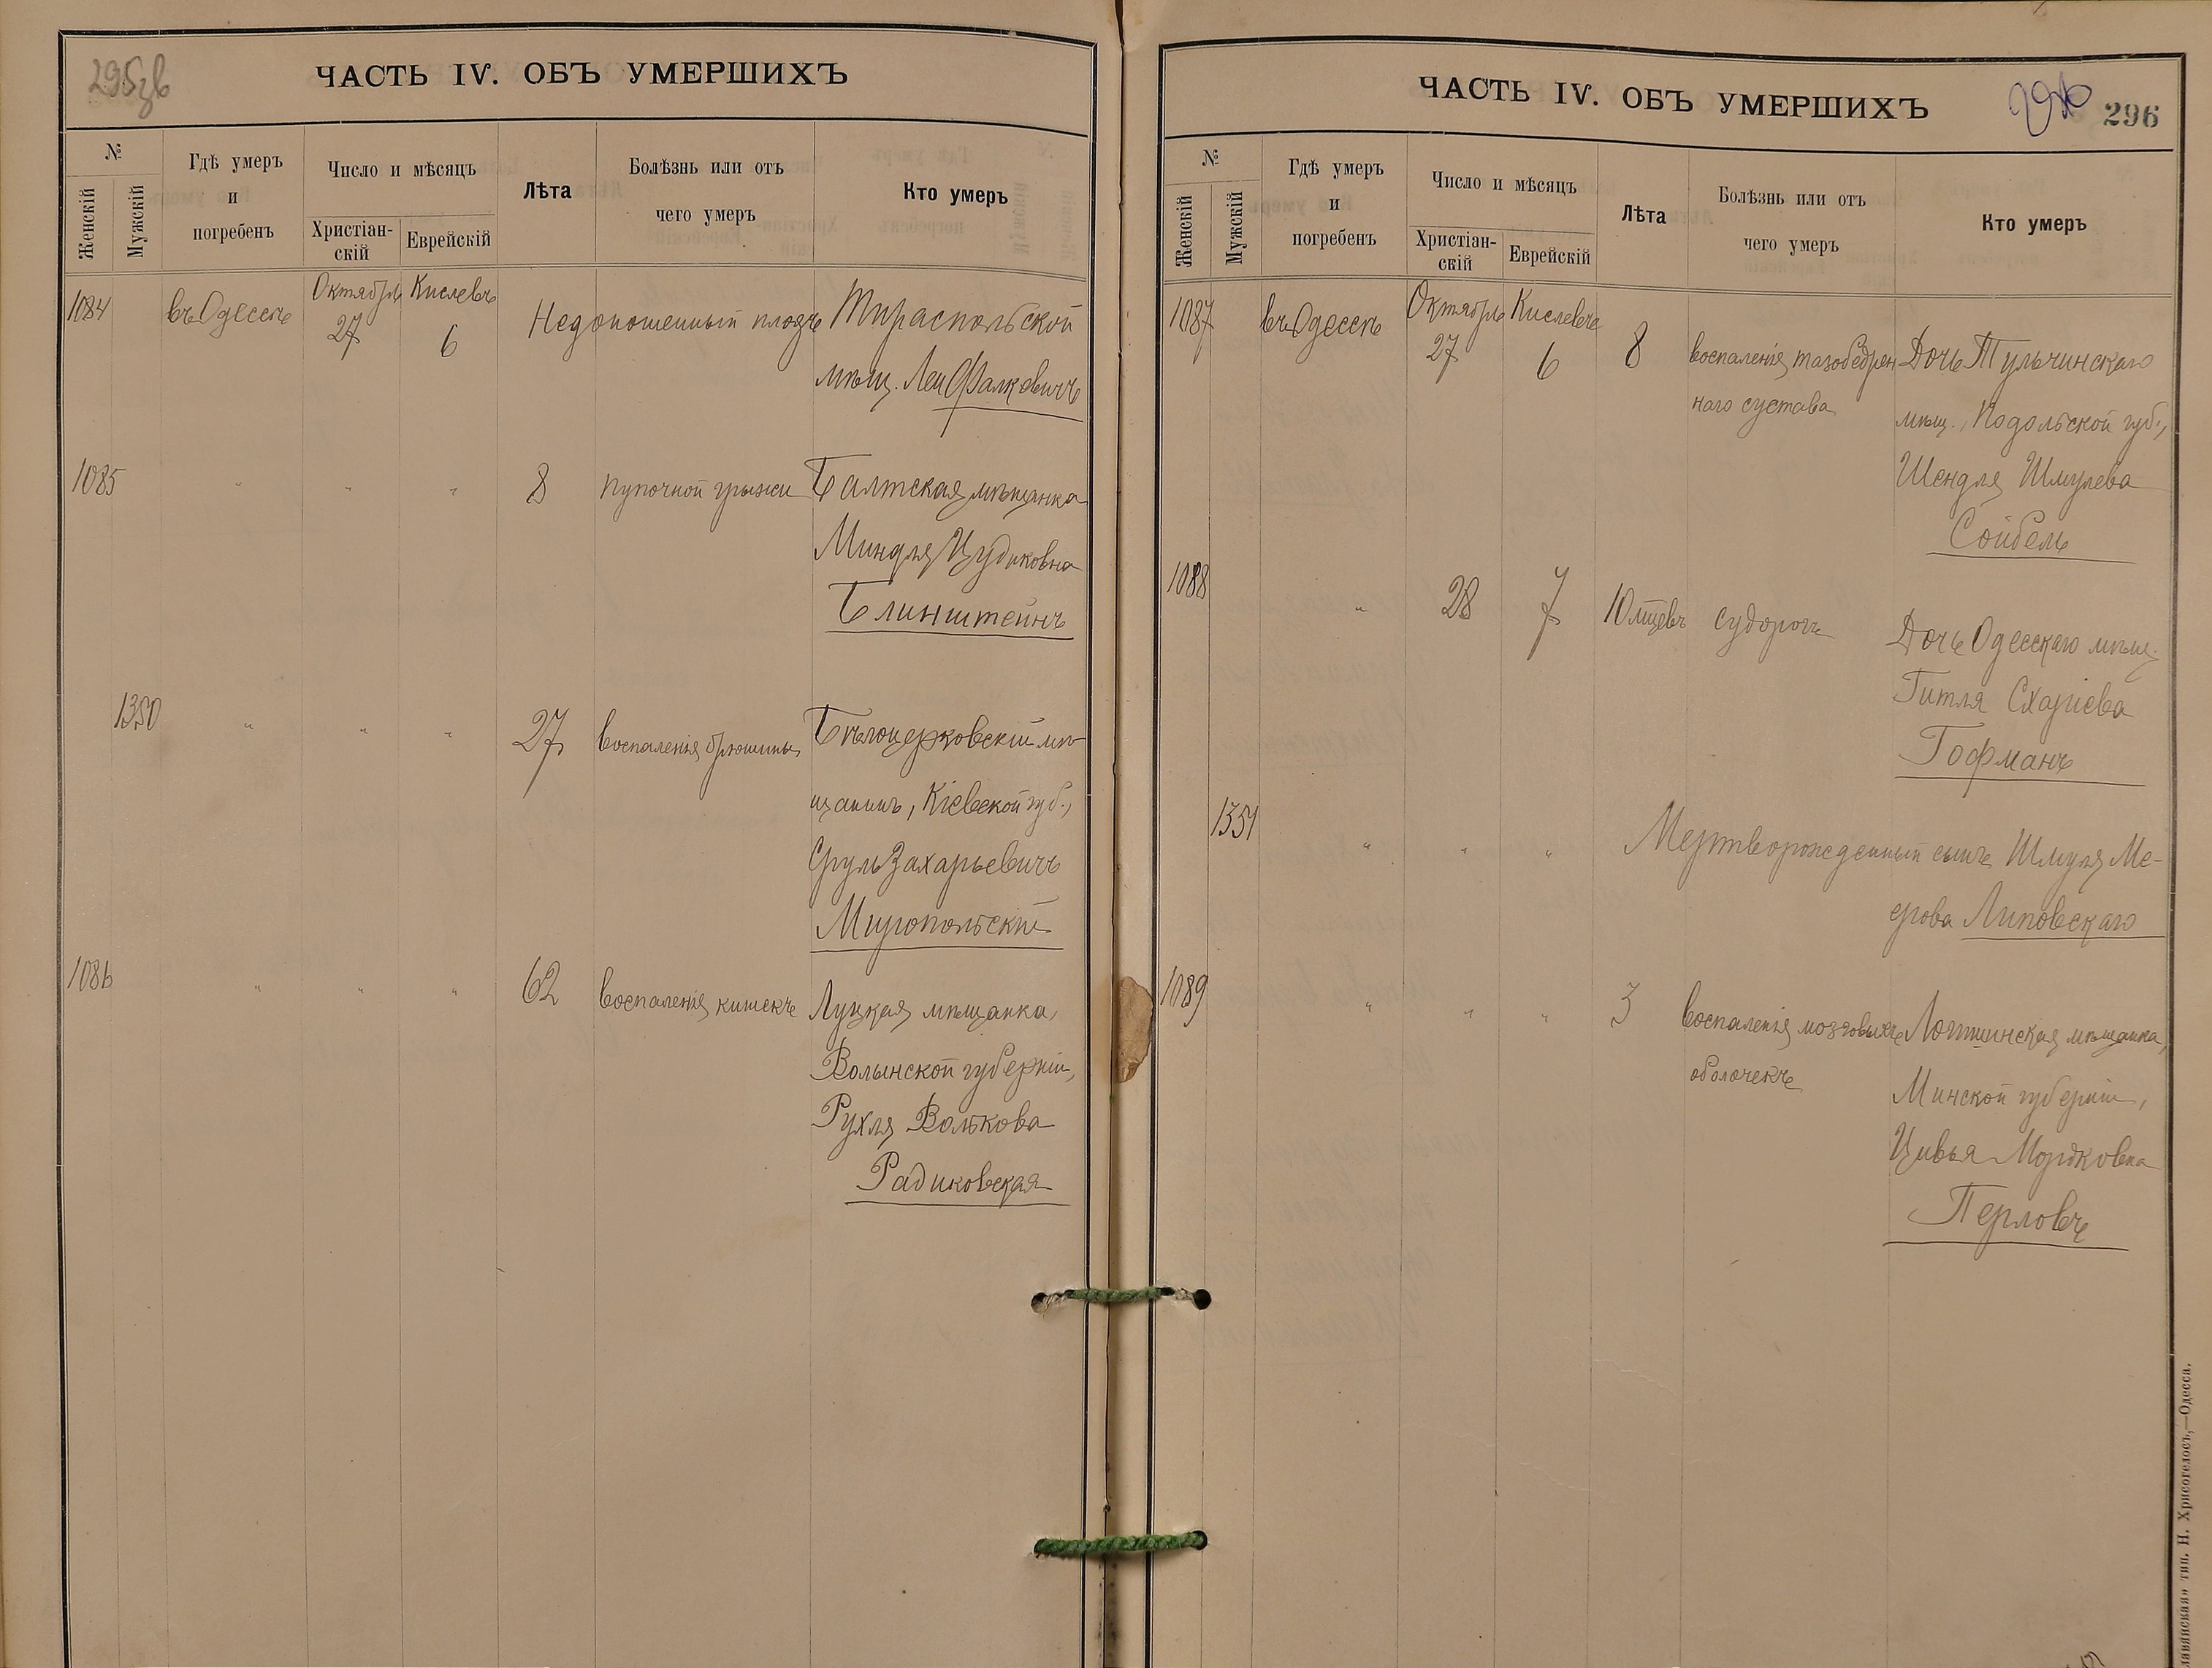 295зв
ЧАСТЬ IV. ОБЪ УМЕРШИХЪ
№
Женскій
Мужскій
Гдѣ умеръ
и
погребенъ
Число и мѣсяцъ
Христіан-
скій
Еврейскій
Лѣта
Болѣзнь или отъ
чего умеръ
Кто умеръ
1084 въ Одессѣ Октября Кислевъ Недоношенный плодъ Тираспольской
27 6 мѣщ. Леи Фалковичъ
1085 " " " 8 пупочной грыжи Балтская мѣщанка
Миндля Цудиковна
Блинштейнъ
1350 " " " 27 воспаленія брюшины Бѣлоцерковскій мѣ-
щанинъ, Кіевской губ.,
Сруль Захарьевичъ
Миропольскій
1086 " " " 62 воспаленія кишекъ Луцкая мѣщанка,
Волынской губерніи,
Рухля Волькова
Радиковская
ЧАСТЬ IV. ОБЪ УМЕРШИХЪ
296
296
№
Женскій
Мужскій
Гдѣ умеръ
и
погребенъ
Число и мѣсяцъ
Христіан-
скій
Еврейскій
Лѣта
Болѣзнь или отъ
чего умеръ
Кто умеръ
1087 въ Одессѣ Октября Кислевъ
27 6 8 воспаленія тазобедрен Дочь Тульчинскаго
наго сустава мѣщ., Подольской губ.,
Шендля Шмулева
Сойбель
1088 " 28 7 10 мцевъ судорогъ Дочь Одесскаго мѣщ.
Гитля Схаріева
Гофманъ
1351 " " " Мертворожденный сынъ Шмуля Ме-
ерова Липовскаго
1089 " " " 3 воспаленія мозговыхъ Логишинская мѣщанка,
оболочекъ Минской губерніи,
Цивья Мордковна
Перловъ
тип. Н. Хрисогелосъ,—Одесса.